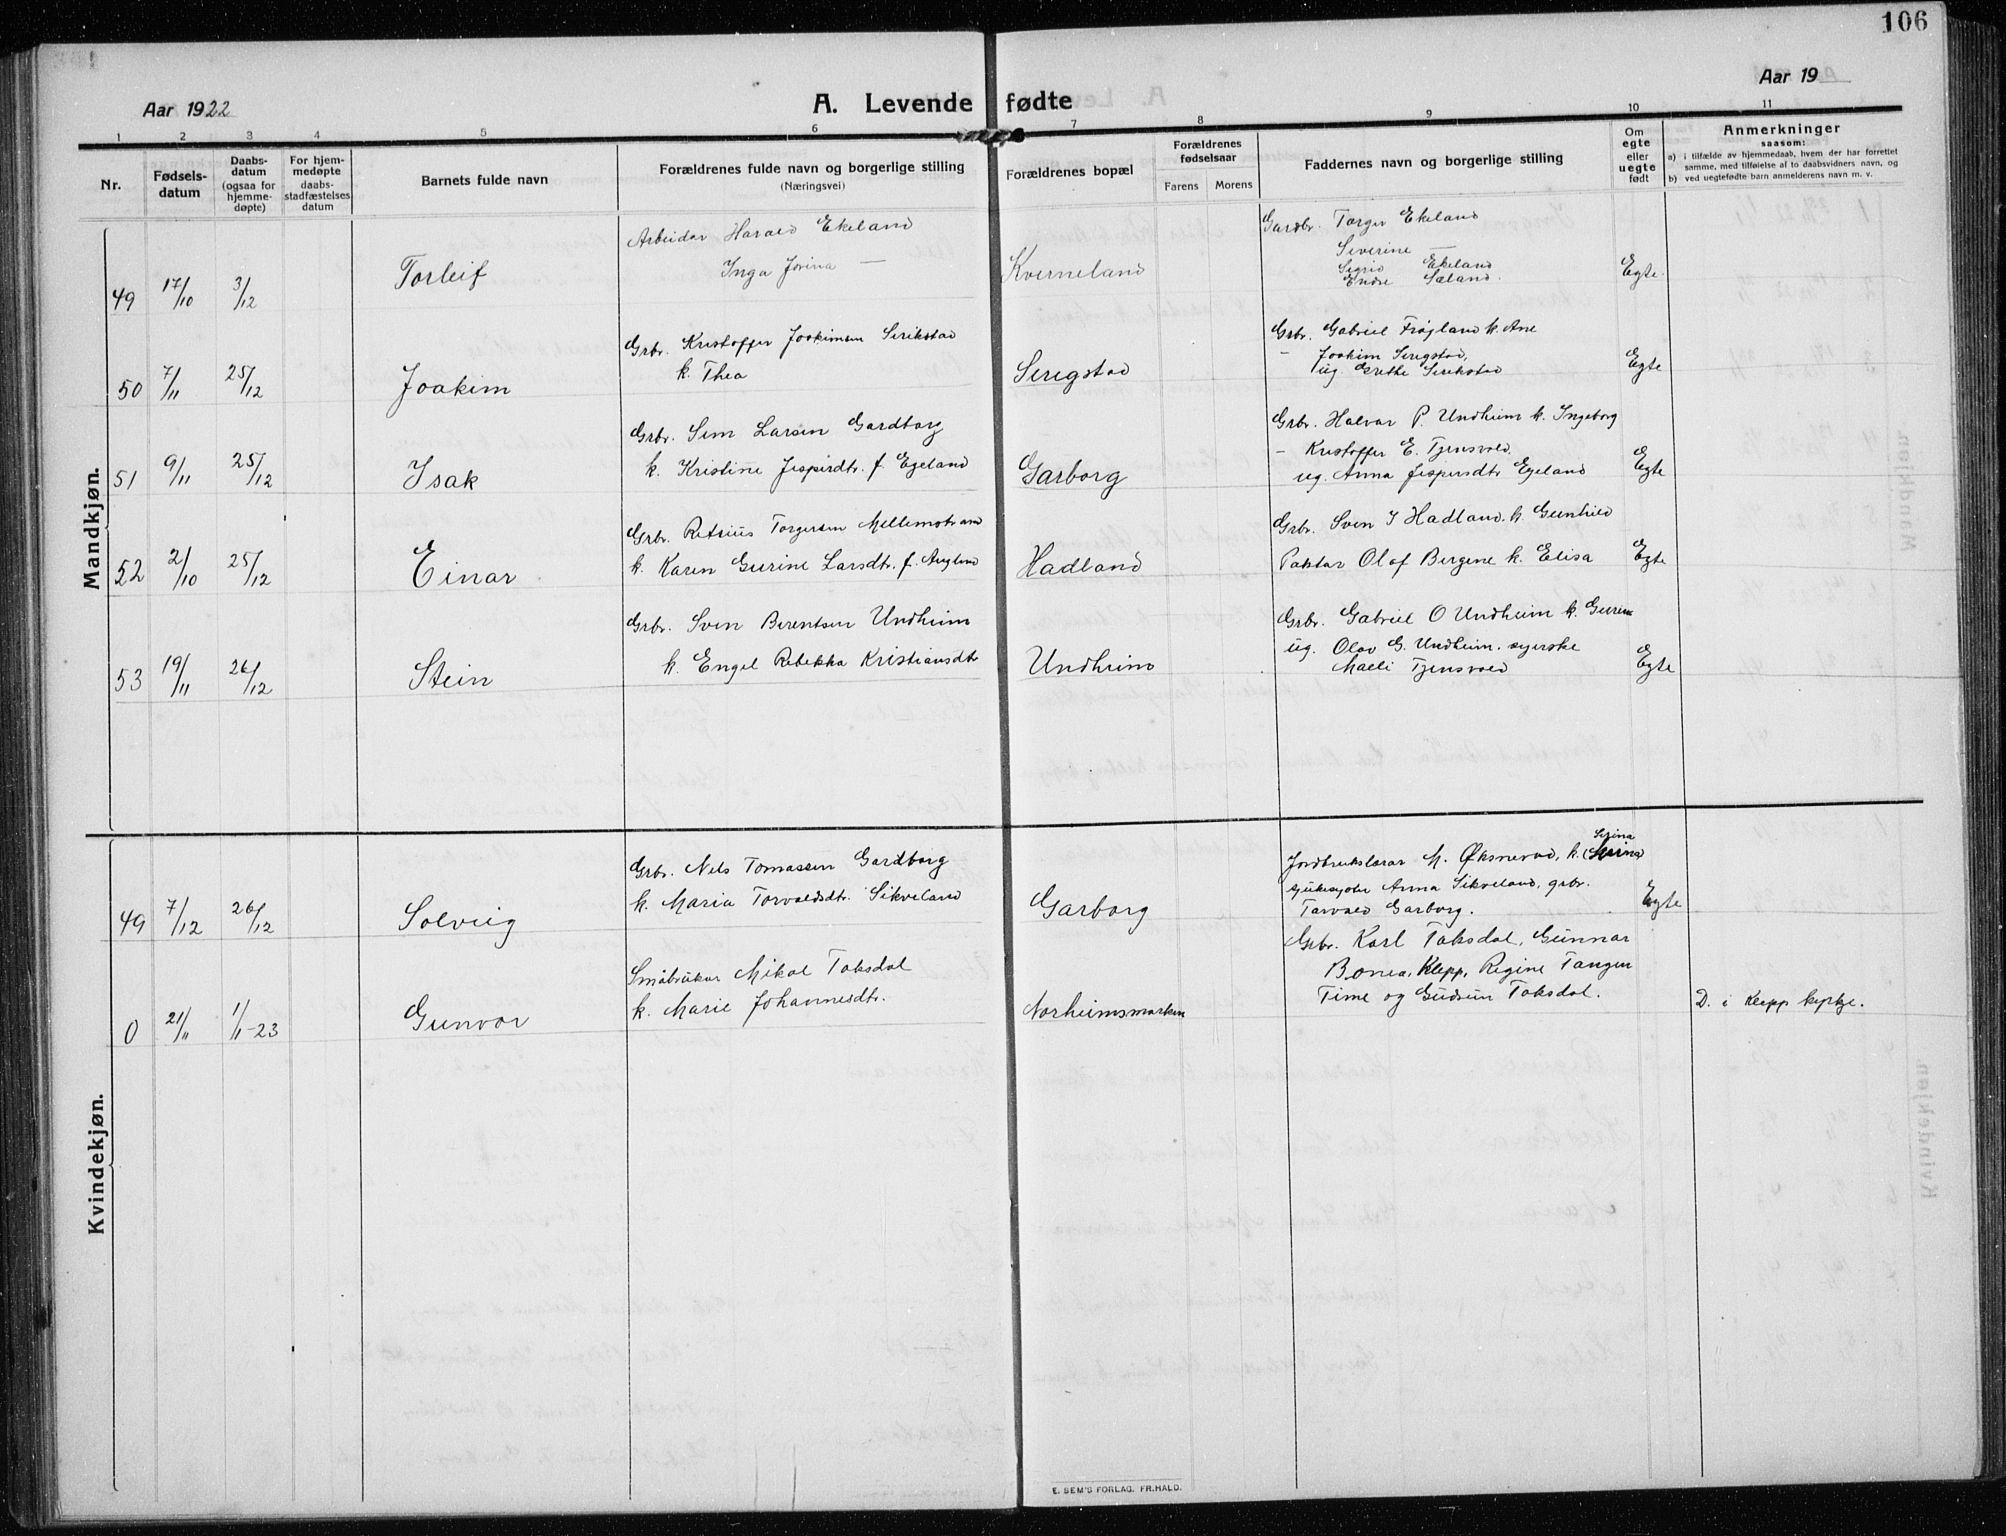 106
Aar 1922
A. Levende fødte
Aar 19
1 2 3 4 5 6 7 8 9 10 11
Nr.
Fødsels-datum
Daabs-datum (ogsaa for hjemme-døpte)
For hjem-medøpte daabs-stadfæstelses datum
Barnets fulde navn
Forældrenes fulde navn og borgerlige stilling
(Næringsvei)
Forældrenes bopæl
Forældrenes fødselsaar
Farens Morens
Faddernes navn og borgerlige stilling
Om egte eller uegte født
Anmerkninger
saasom:
a) i tilfælde av hjemmedaab, hvem der har forrettet samme, med tilføielse af to daabsvidners navn, og
b) ved uegtefødte barn anmelderens navn m. v.
Mandkjøn.
49 17/10 3/12 Torleif
Arbeidar Harald Ekeland
Inga Jorina —
Kverneland
Gardbr. Torger Ekeland
Severine —
Sigrid Ekeland
Endre Sæland
Egte
50 7/11 25/12 Joakim
Grbr. Kristoffer Joakimsen Serikstad
k. Thea
Serigstad
Grbr. Gabriel Frøyland k. Ane
— Joakim Serigstad,
ug. Grethe Serikstad
Egte
51 9/11 25/12 Isak
Grbr. Sem Larsen Gardborg
k. Kristine Jespersdtr. f. Egeland
Garborg
Grbr. Halvar P. Undheim k. Ingeborg
— Kristoffer E. Tjensvold,
ug. Anna Jespersdtr Egeland
Egte
52 2/10 25/12 Einar
Grbr. Retsius Torgersen Mellemstrand
k. Karen Gurine Larsdtr. f.
Hadland
Grbr. Sven I Hadland. k. Gunhild
Paktar Olof Bergene k. Elisa
Egte
53 19/11 26/12 Stein
Grbr. Sven Berentsen Undheim
k. Engel Rebekka Kristiansdtr
Undheim
Grbr. Gabriel O Undheim k. Gurine
ug. Olav G. Undheim. syerske
Malli Tjensvold
Egte
Kvindekjøn.
49 7/12 26/12 Solveig
Grbr. Nels Tomassen Gardborg
k. Maria Torvaldsdtr. Sikveland
Garborg
Jordbrukslærar M. Øksnevad, k. Serina
Anna Sikveland, grbr.
Tarvald Garborg.
Egte
0 21/11 1/1-23 Gunvor
Småbrukar Mikal Taksdal
k. Marie Johannesdtr.
Norheimsmarken
Grbr. Karl Taksdal, Gunnar
Bonea, Klepp, Regine Tangen
Time og Gudrun Taksdal.
D. i Klepp kyrkje.
E. SEM'S FORLAG. FR.HALD.